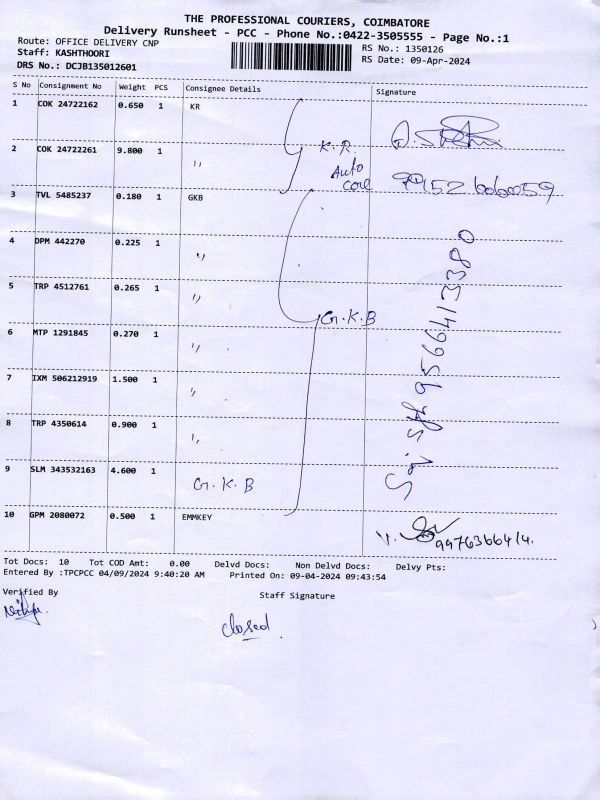 THE PROFESSIONAL COURIERS, COIMBATORE
Delivery Runsheet - PCC - Phone No.:0422-3505555 - Page No.:1
Route: OFFICE DELIVERY CNP
RS No.: 1350126
Staff: KASHTHOORI
RS Date: 09-Apr-2024
DRS No.: DCJB135012601
S No Consignment No Weight PCS Consignee Details Signature
1 COK 24722162 0.650 1 KR
2 COK 24722261 9.800 1 ,, K.R
Auto
3 TVL 5485237 0.180 1 GKB
4 DPM 442270 0.225 1 ,,
5 TRP 4512761 0.265 1 ,,
G.K.B
6 MTP 1291845 0.270 1 ,,
9566413380
7 IXM 506212919 1.500 1 ,,
8 TRP 4350614 0.900 1 ,,
9 SLM 343532163 4.600 1 G.K.B
10 GPM 2080072 0.500 1 EMMKEY
Tot Docs: 10 Tot COD Amt: 0.00 Delvd Docs: Non Delvd Docs: Delvy Pts:
Entered By :TPCPCC 04/09/2024 9:40:20 AM Printed On: 09-04-2024 09:43:54
Verified By
Staff Signature
closed